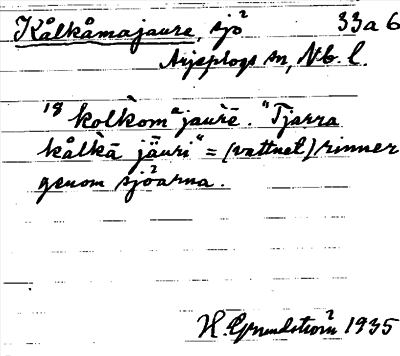 Kålkåmajaure, sjö 33a6
Arjeplogs sn, Nb. l.
18 kolkom jaurē. "Tjarra
kålkā jäuri" = (vattnet) rinner
genom sjöarna.
H. Grundström 1935